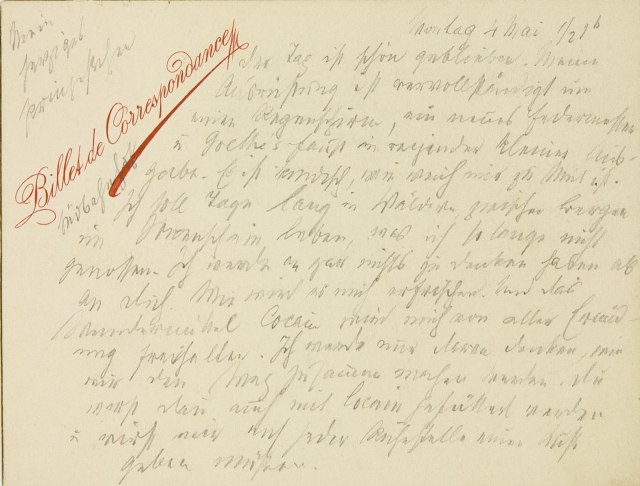 Montag 4 Mai 1/2 1h
Mein
herziges
Prinzeßchen
Billet de Correspondance
Südbahnhof
der Tag ist schön geblieben. Meine
Ausrüstung ist vervollständigt um
einen Regenschirm, ein neues Federmesser
u Goethe's Faust in reizender kleiner Aus-
gabe. Es ist kindisch, wie weich mir zu Mut ist.
Ich soll Tage lang in Wäldern zwischen Bergen
im Sonnenschein leben, was ich so lange nicht
genossen. Ich werde an gar nichts zu denken haben als
an dich. Wie wird es mich erfrischen. Und das
Wundermittel Cocain wird mich von aller Ermüd-
ung freihalten. Ich werde nur daran denken, wie
wir den Weg zusammen machen werden. Du
wirst dann auch mit Cocain gefüttert werden
u wirst mir auf jeder Ruhestelle einen Kuß
geben müssen.